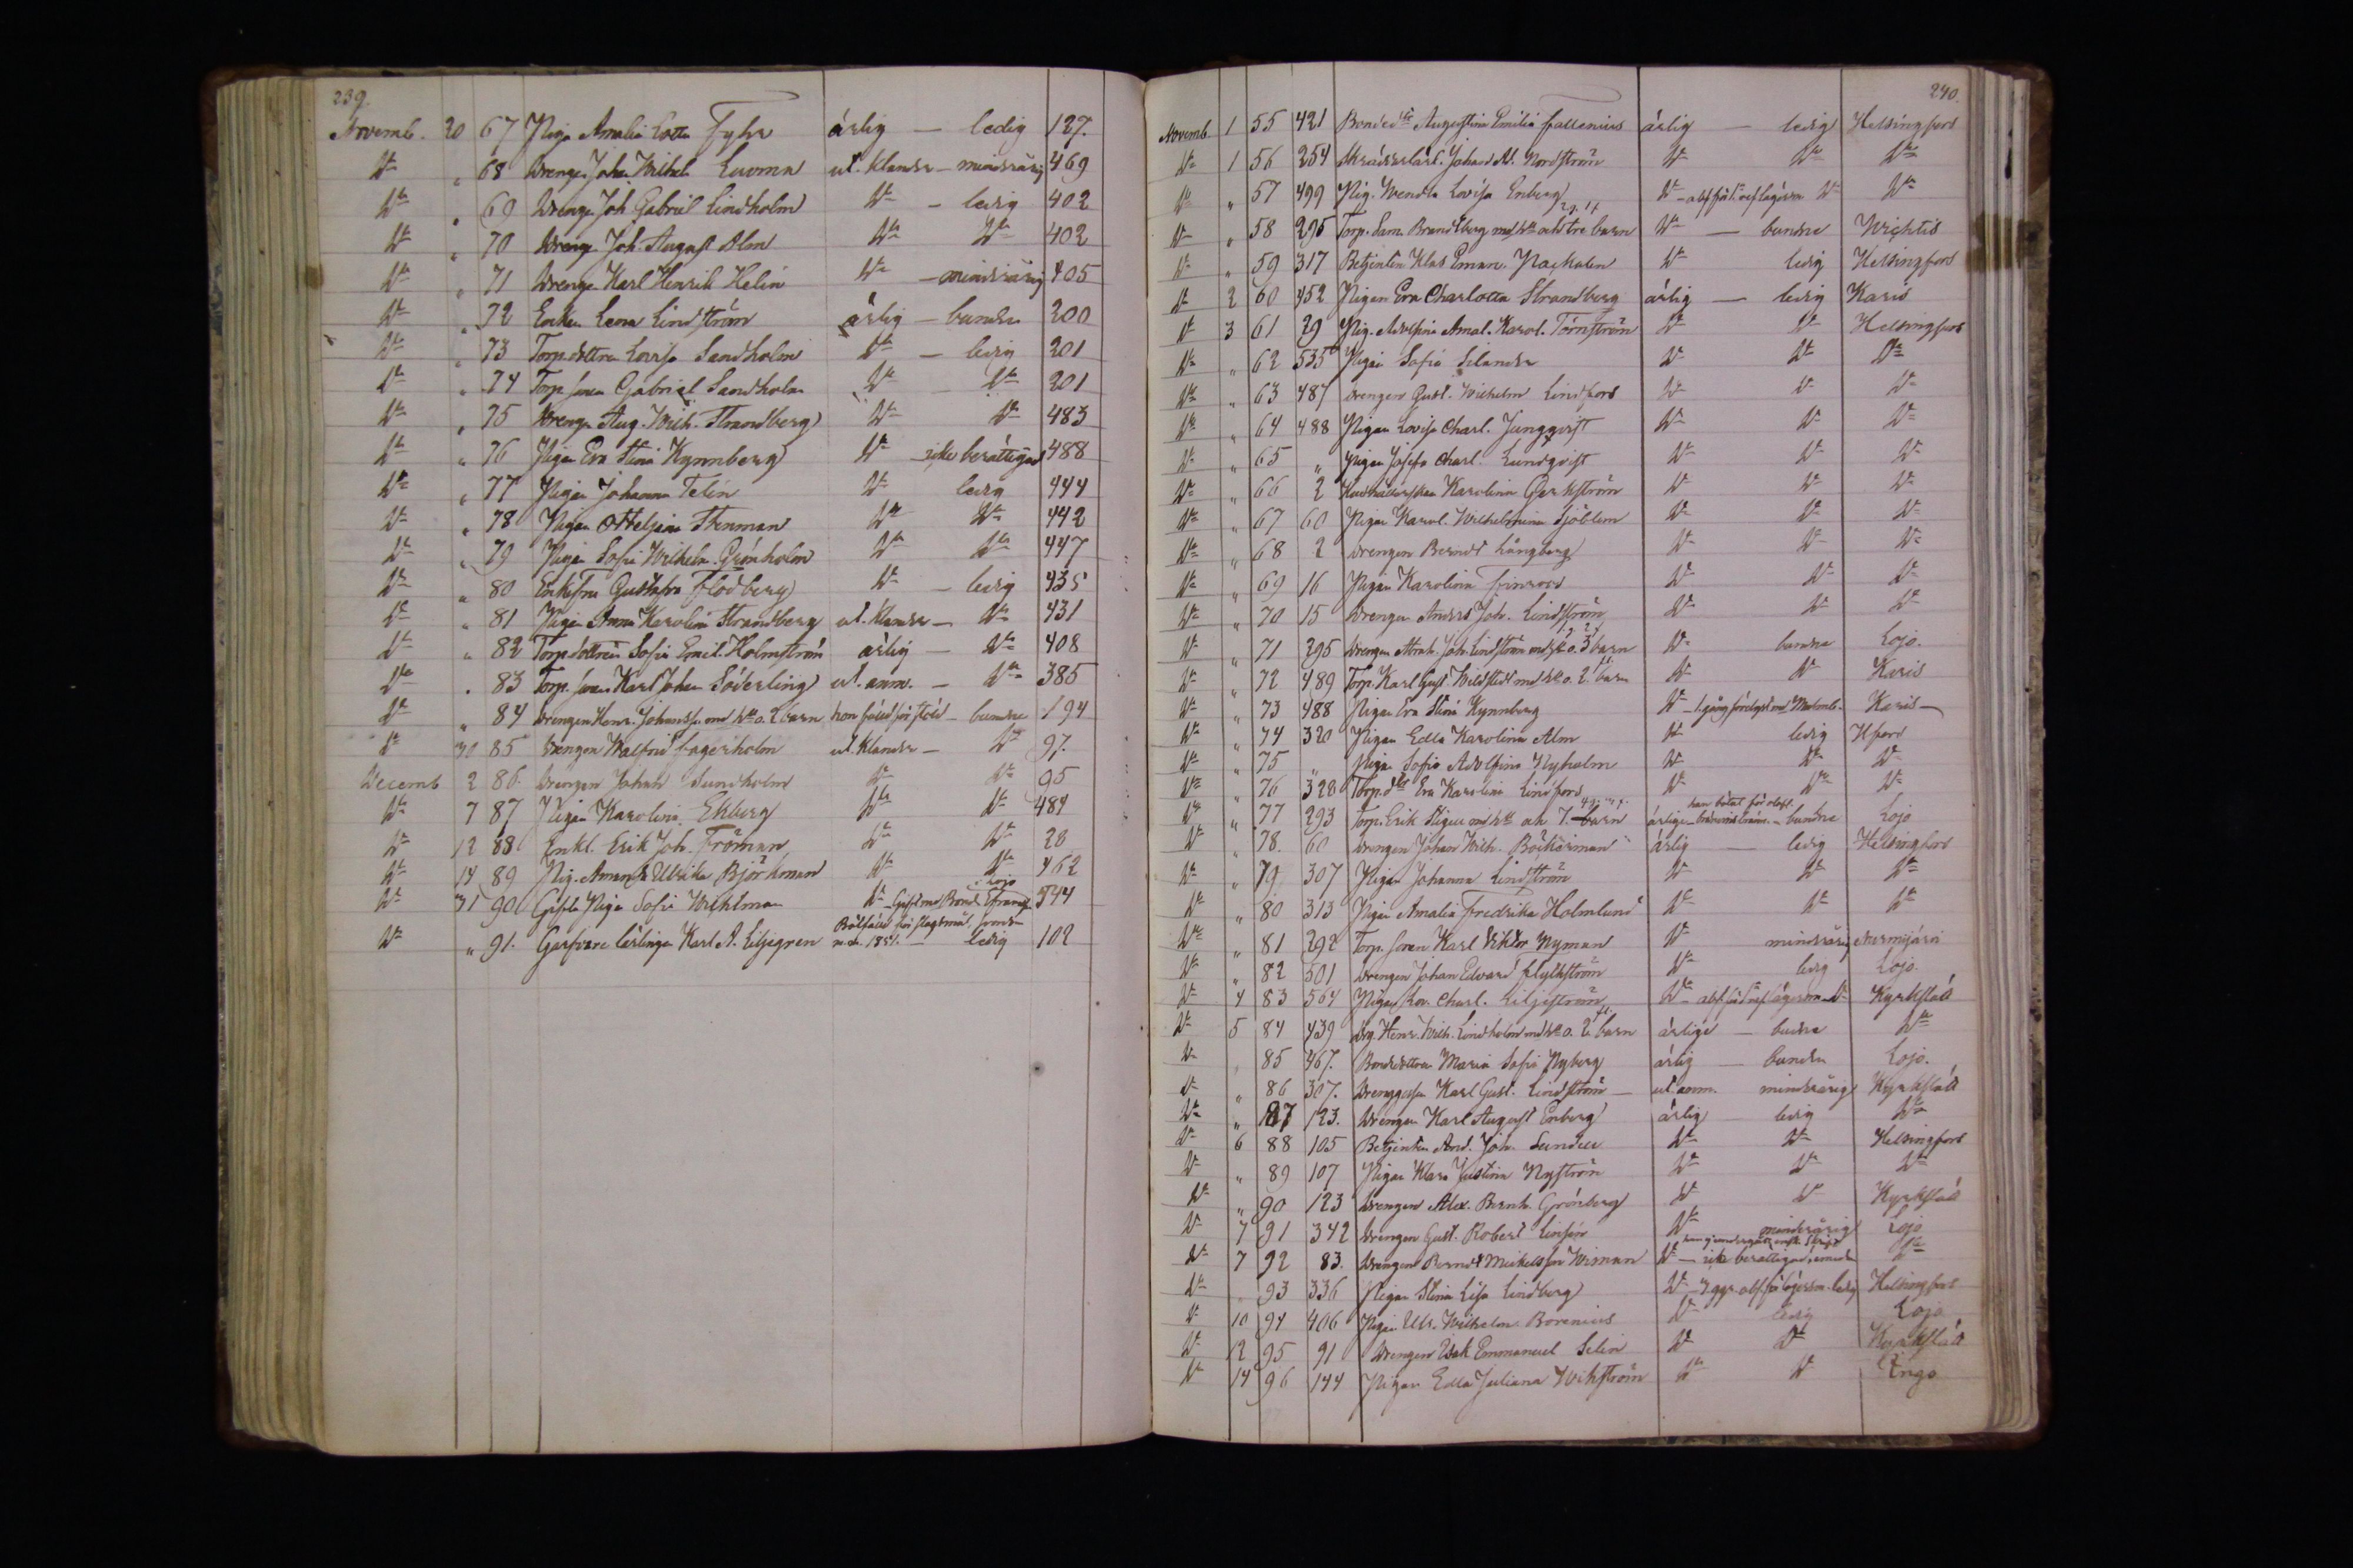 239
Novemb. 20 67 Pigan Amalia Lotta Fyhr ärlig — ledig 127.
Do " 68 Drengen Johan Wilhelm Luoma ut. klander — minderårig 469
Do " 69 Drengen Joh. Gabriel Lindholm Do — ledig 402
Do " 70 Dreng. Joh. August Alm Do Do 402
Do " 71 Drengen Karl Henrik Helin Do — minderårig 405
Do " 72 Enkan Lena Lindström ärlig — bunden 200
Do " 73 Torp.dottren Lovisa Sandholm Do — ledig 201
Do " 74 Torp.sonen Gabriel Sandholm Do Do 201
Do " 75 Drengen Aug. Wilh. Strandberg Do Do 483
Do " 76 Pigan Eva Stina Kynnberg Do icke berättigad 488
Do " 77 Pigan Johanna Telin Do ledig 444
Do " 78 Pigan Otteljana Stenman Do Do 442
Do " 79 Pigan Sofia Wilhelm. Grönholm Do Do 447
Do " 80 Enkefru Gustafva Flodberg Do — ledig 435
Do " 81 Pigan Anna Karolina Strandberg ut. klander — Do 431
Do " 82 Torp.dottren Sofia Emil. Holmström ärlig — Do 408
Do " 83 Torp.sonen Karl Johan Söderling ut. anm. — Do 385
Do " 84 Drengen Henr. Johansson med h:u o. 2 barn hon fälld för stöld — bundne 194
Do 30 85 Drengen Walfrid Fagerholm ut. klander — Do 97.
Decemb 2 86. Drengen Johan Sundholm Do Do 95
Do 7 87 Pigan Karolina Ekberg Do Do 484
Do 12 88 Enkl. Erik Joh. Fröman Do Do 28
Do 14 89 Pig. Amanda Ulrika Björkman Do Do 462
Do 31 90 Gifta Pigan Sofia Wichtman Do — Gift med Bond. Lojo 544
Do " 91. Garfvare lärlingen Karl A. Liljegren Bötfälld för slagsmål — ledig 102
240.
Novemb. 1 55 421 Bonded:r Augustina Emilia Fallenius ärlig — ledig Helsingfors
Do 1 56 254 Skräddarlärl. Johan Ad. Nordström Do Do Do
Do " 57 499 Pig. Wendla Lovisa Enberg Do Do Do
Do " 58 295 Torp. Sam. Brandtberg med h:u och tre barn Do — bundne Wichtis
Do " 59 317 Betjenten Klas Eman. Packalen Do ledig Helsingfors
Do 2 60 452 Pigan Eva Charlotta Strandberg ärlig — ledig Karis
Do 3 61 29 Pig. Adolfina Amal. Karol. Törnström Do Do Helsingfors
Do " 62 535 Pigan Sofia Selander Do Do Do
Do " 63 487 Drengen Gust. Wilhelm Lindfors Do Do Do
Do " 64 488 Pigan Lovisa Charl. Jungqvist Do Do Do
Do " 65 " Pigan Josefa Charl. Lundqvist Do Do Do
Do " 66 2 Hushållerskan Karolina Gerkström Do Do Do
Do " 67 60 Pigan Karol. Wilhelmina Sjöblom Do Do Do
Do " 68 2 Drengen Berndt Långberg Do Do Do
Do " 69 16 Pigan Karolina Finroos Do Do Do
Do " 70 15 Drengen Anders Joh. Lindström Do Do Do
Do " 71 295 Drengen Abrah. Joh. Lindström med h:u o. 3 barn Do bundne Lojo.
Do " 72 489 Torp. Karl Gust. Wildstedt med h:u o. 2 barn Do Do Karis
Do " 73 488 Pigan Eva Stina Kynnberg Do Karis
Do " 74 320 Pigan Edla Karolina Alm Do ledig Hfors
Do " 75 " Pigan Sofia Adolfina Nyholm Do Do Do
Do " 76 320 Torp.d:r Eva Karolina Lindfors Do Do Do
Do " 77 293 Torp. Erik Stigell med h:u och 7 barn ärlige — bundne Lojo
Do " 78. 60 Drengen Johan Wilh. Böckerman ärlig — ledig Helsingfors
Do " 79 307 Pigan Johanna Lindström Do Do Do
Do " 80 313 Pigan Amalia Fredrika Holmlund Do Do Do
Do " 81 292 Torp.sonen Karl Viktor Nyman Do minderårig Nurmijärvi
Do " 82 501 Drengen Johan Edvard Flyckström Do ledig Lojo.
Do 4 83 564 Pigan Lov. Charl. Liljeström Do Do Kyrkslätt
Do 5 84 439 Drg. Henr. Wilh. Lindholm med h:u o. 2 barn ärlige — bundne Do
Do " 85 467. Bondedottren Maria Sofia Nyberg ärlig — bunden Lojo.
Do " 86 307. Drenggossen Karl Gust. Lindström — ut. anm. minderårig Kyrkslätt
Do " 87 123. Drengen Karl August Enberg ärlig ledig Do
Do 6 88 105 Betjenten And. Joh. Sundell Do Do Helsingfors
Do " 89 107 Pigan Klara Justina Nyström Do Do Do
Do " 90 123 Drengen Alex. Bernh. Grönberg Do Do Kyrkslätt
Do 7 91 342 Drengen Gust. Robert Linsén Do minderårig Lojo
Do 7 92 83. Drengen Berndt Mickelsson Wiman Do — icke berättigad Do
Do 93 336 Pigan Stina Lisa Lindberg Do ledig Helsingfors
Do 10 94 406 Pigan Ulr. Wilhelm. Borenius Do ledig Lojo
Do 12 95 91 Drengen Isak Emmanuel Selin Do Do Kyrkslätt
Do 14 96 144 Pigan Edla Juliana Wikström Do Do Ingo